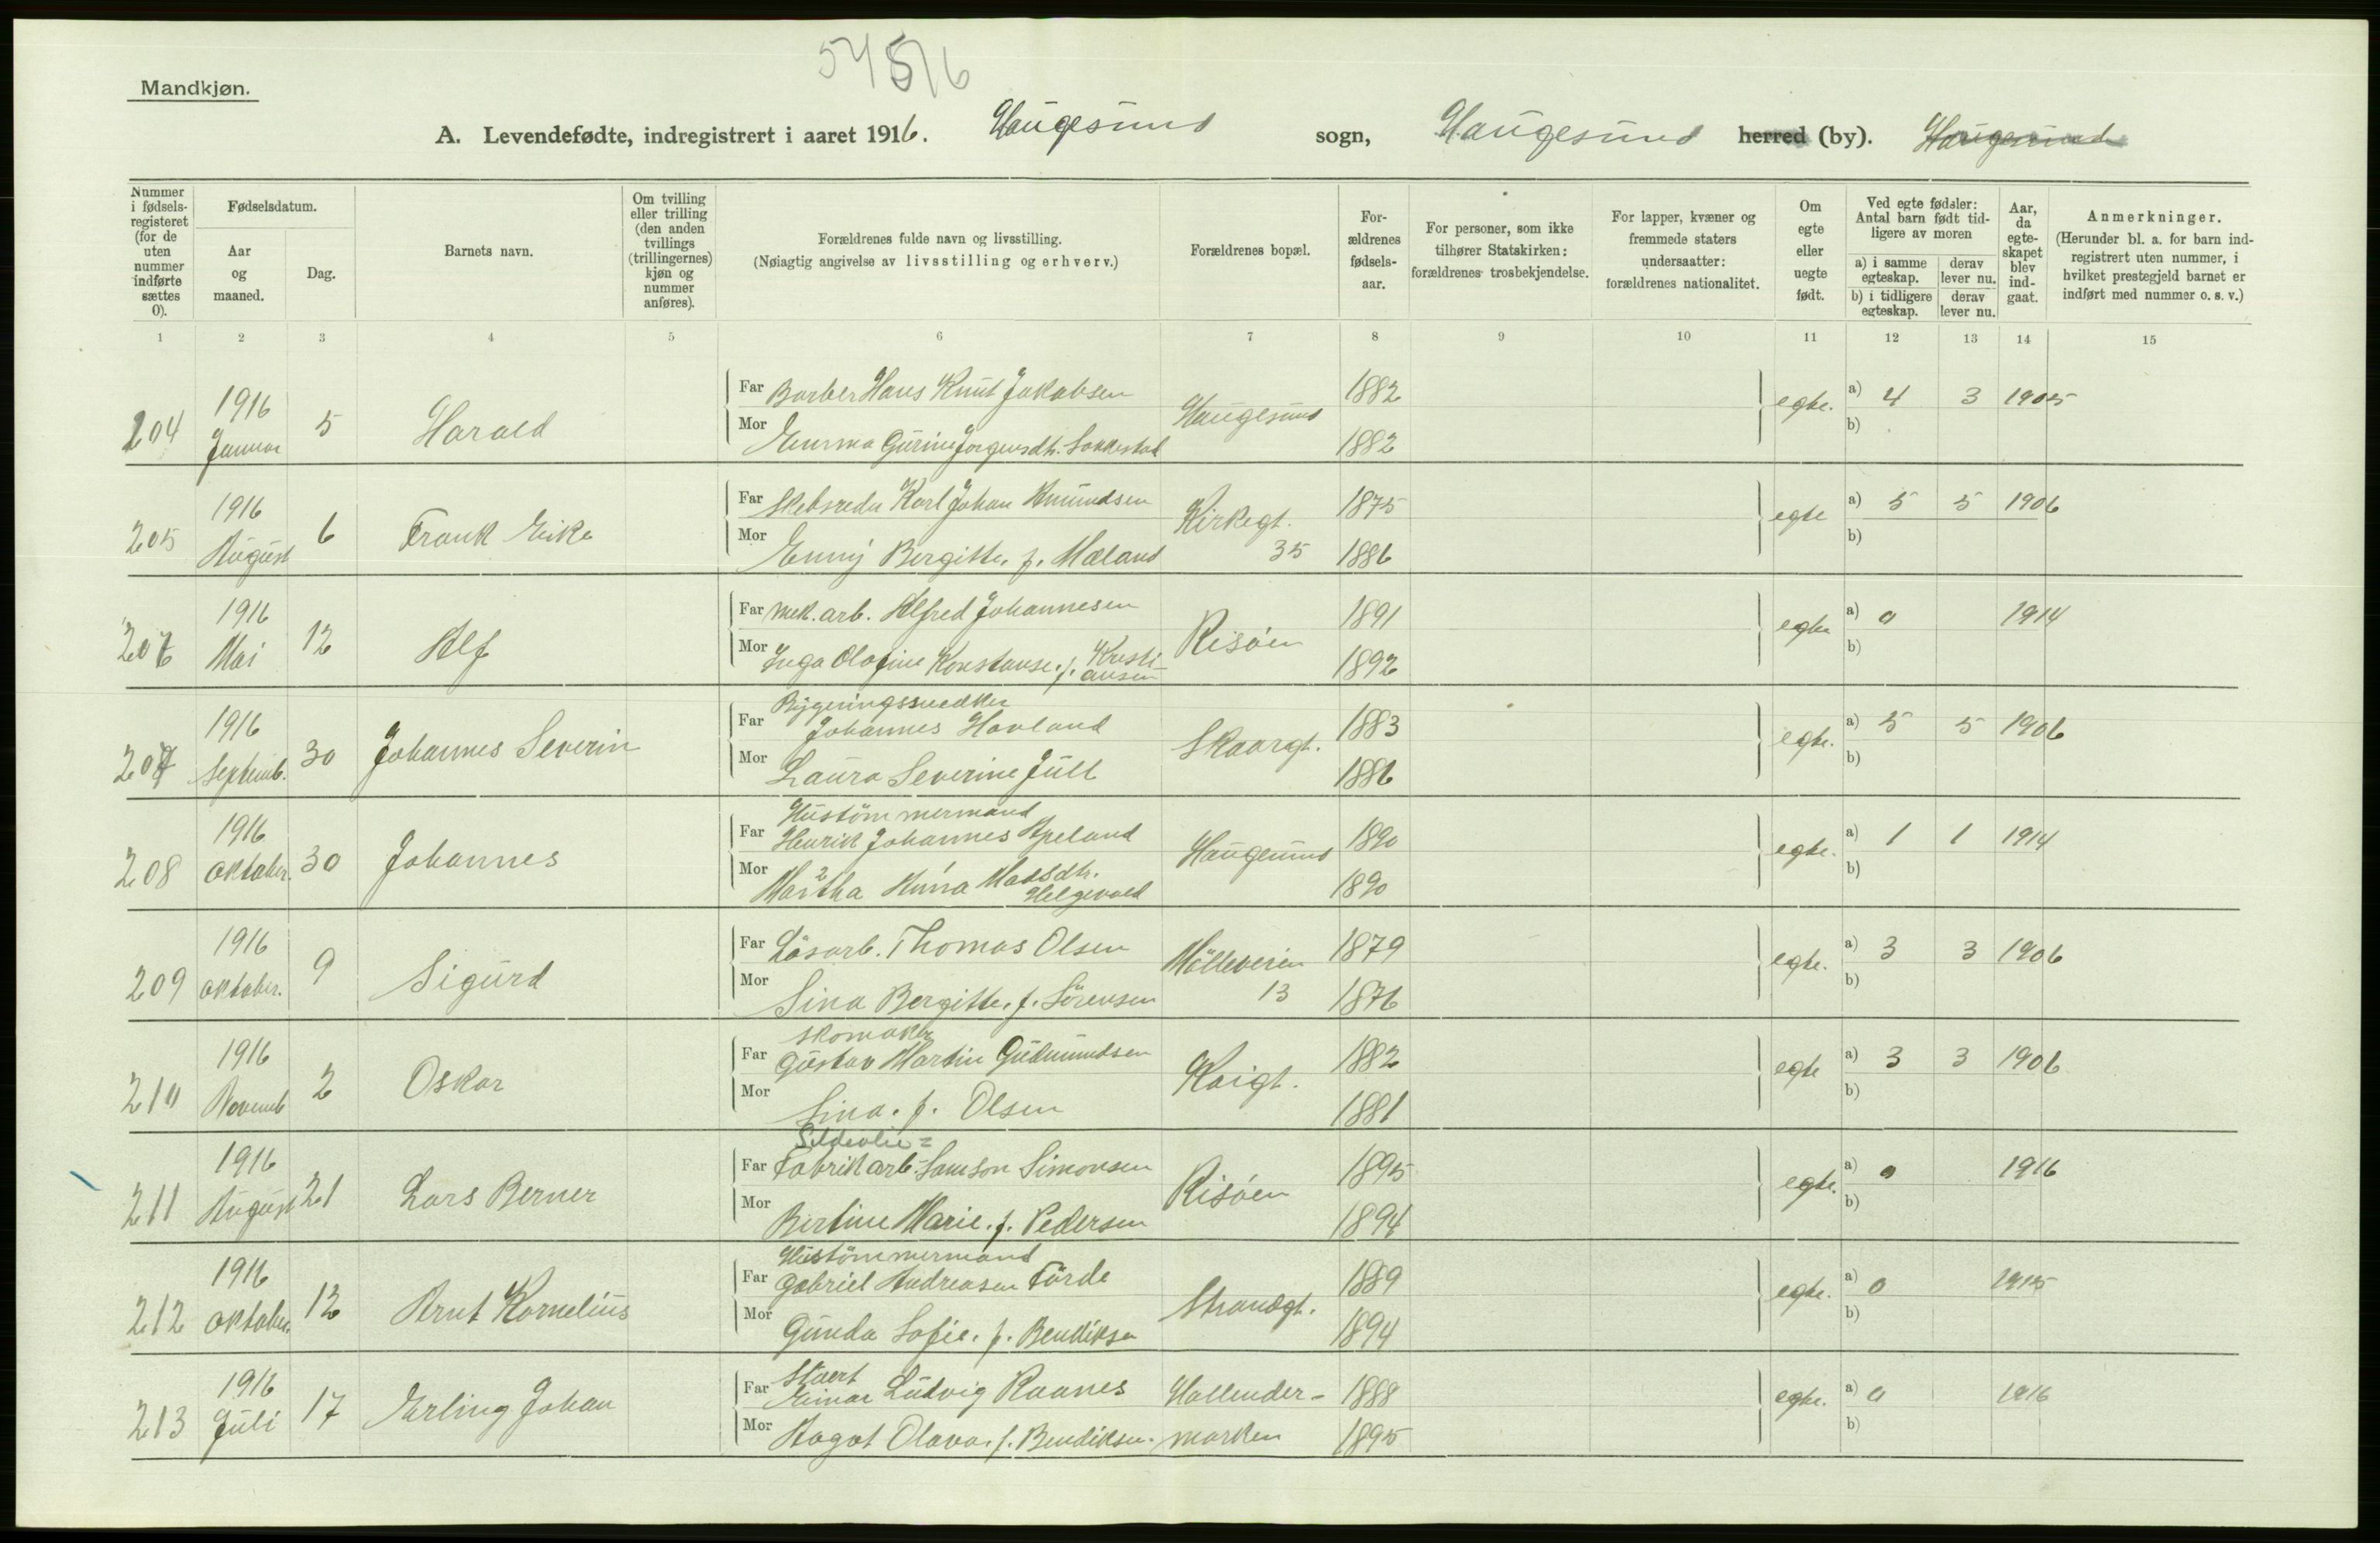 54516
Mandkjøn.
A. Levendefødte, indregistrert i aaret 1916. Haugesund sogn, Haugesund herred (by). Haugesund
Nummer i fødsels-registeret (for de uten nummer indførte sættes 0).
Fødselsdatum.
Aar og maaned.
Dag.
Barnets navn.
Om tvilling eller trilling (den anden tvillings (trillingernes) kjøn og nummer anføres).
Forældrenes fulde navn og livsstilling.
(Nøiagtig angivelse av livsstilling og erhverv.)
Forældrenes bopæl.
For-ældrenes fødsels-aar.
For personer, som ikke tilhører Statskirken: forældrenes trosbekjendelse.
For lapper, kvæner og fremmede staters undersaatter: forældrenes nationalitet.
Om egte eller uegte født.
Ved egte fødsler: Antal barn født tid-ligere av moren
a) i samme egteskap.
derav lever nu.
b) i tidligere egteskap.
derav lever nu.
Aar, da egte-skapet blev ind-gaat.
Anmerkninger.
(Herunder bl. a. for barn ind-registrert uten nummer, i hvilket prestegjeld barnet er indført med nummer o. s. v.)
1 2 3 4 5 6 7 8 9 10 11 12 13 14 15
204 1916 Januar 5 Harald
Far Barber Hans Knut Jakobsen Haugesund 1882 egte. a) 4 3 1905
Mor Emma Gurine Jørgensdtr. Sakkestad 1882 b)
205 1916 August 6 Frank Eike
Far Skibsreder Karl Johan Amundsen Kirkegt. 35 1875 egte a) 5 5 1906
Mor Enny Bergitte. f. Mæland 1886 b)
206 1916 Mai 12 Alf
Far Mek. arb. Alfred Johannesen Risøen 1891 egte a) 0 1914
Mor Inga Olofine Konstanse. f. Kristiansen 1892 b)
207 1916 Septemb. 30 Johannes Severin
Bygningssnedker
Far Johannes Hovland Skaargt. 1883 egte. a) 5 5 1906
Mor Laura Severine Jull 1886 b)
208 1916 Oktober. 30 Johannes
Hustömmermand
Far Henrik Johannes Apeland Haugesund 1890 egte. a) 1 1 1914
Mor Martha Anna Madsdtr. Helgevold 1890 b)
209 1916 Oktober. 9 Sigurd
Far Løsarb. Thomas Olsen Mölleveien 13 1879 egte. a) 3 3 1906
Mor Sina Bergitte. f. Sörensen 1876 b)
210 1916 Novemb 2 Oskar
Skomaker
Far Gustav Martin Gudmundsen Kaigt. 1882 egte a) 3 3 1906
Mor Sina. f. Olsen 1881 b)
211 1916 August 21 Lars Berner
Sildeolie=
Far Fabrikarb. Samson Simonsen Risøen 1895 egte. a) 0 1916
Mor Bertine Marie. f. Pedersen 1894 b)
212 1916 Oktober. 12 Arnt Kornelius
Hustömmermand
Far Gabriel Andreasen Förde Strandgt. 1889 egte. a) 0 1915
Mor Gunda Sofie. f. Bendiksen 1894 b)
213 1916 Juli 17 Erling Johan
Stuert
Far Einar Ludvig Raanes Hallender-marken 1888 egte. a) 0 1916
Mor Aagot Olava. f. Bendiksen. 1895 b)